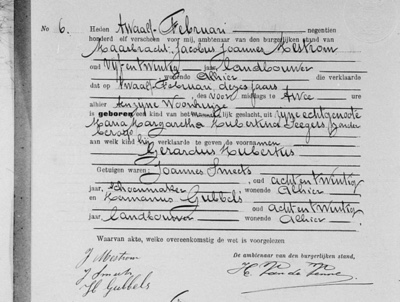 No 6. Heden Twaalf Februari negentien
honderd elf verscheen voor mij, ambtenaar van den burgerlijken stand van
Maasbracht: Jacobus Joannes Mestrom
oud Vijf en twintig jaar, landbouwer
wonende Alhier die verklaarde
dat op Twaalf Februari dezes jaars
des voor middags te Twee ure
alhier ten zijne Woonhuize
is geboren een kind van het mannelijk geslacht, uit zijne echtgenoote
Maria Margaretha Hubertina Geegers zonder
beroep
aan welk kind hij verklaarde te geven de voornamen
Gerardus Hubertus
Getuigen waren: Joannes Smeets
oud acht en twintig
jaar, Schoenmaker wonende Alhier
en Hermanus Gubbels
oud acht en twintig
jaar landbouwer wonende Alhier
Waarvan akte, welke overeenkomstig de wet is voorgelezen
De ambtenaar van den burgerlijken stand,
J Mestrom
J Smeets
H Gubbels
H. van de Venne